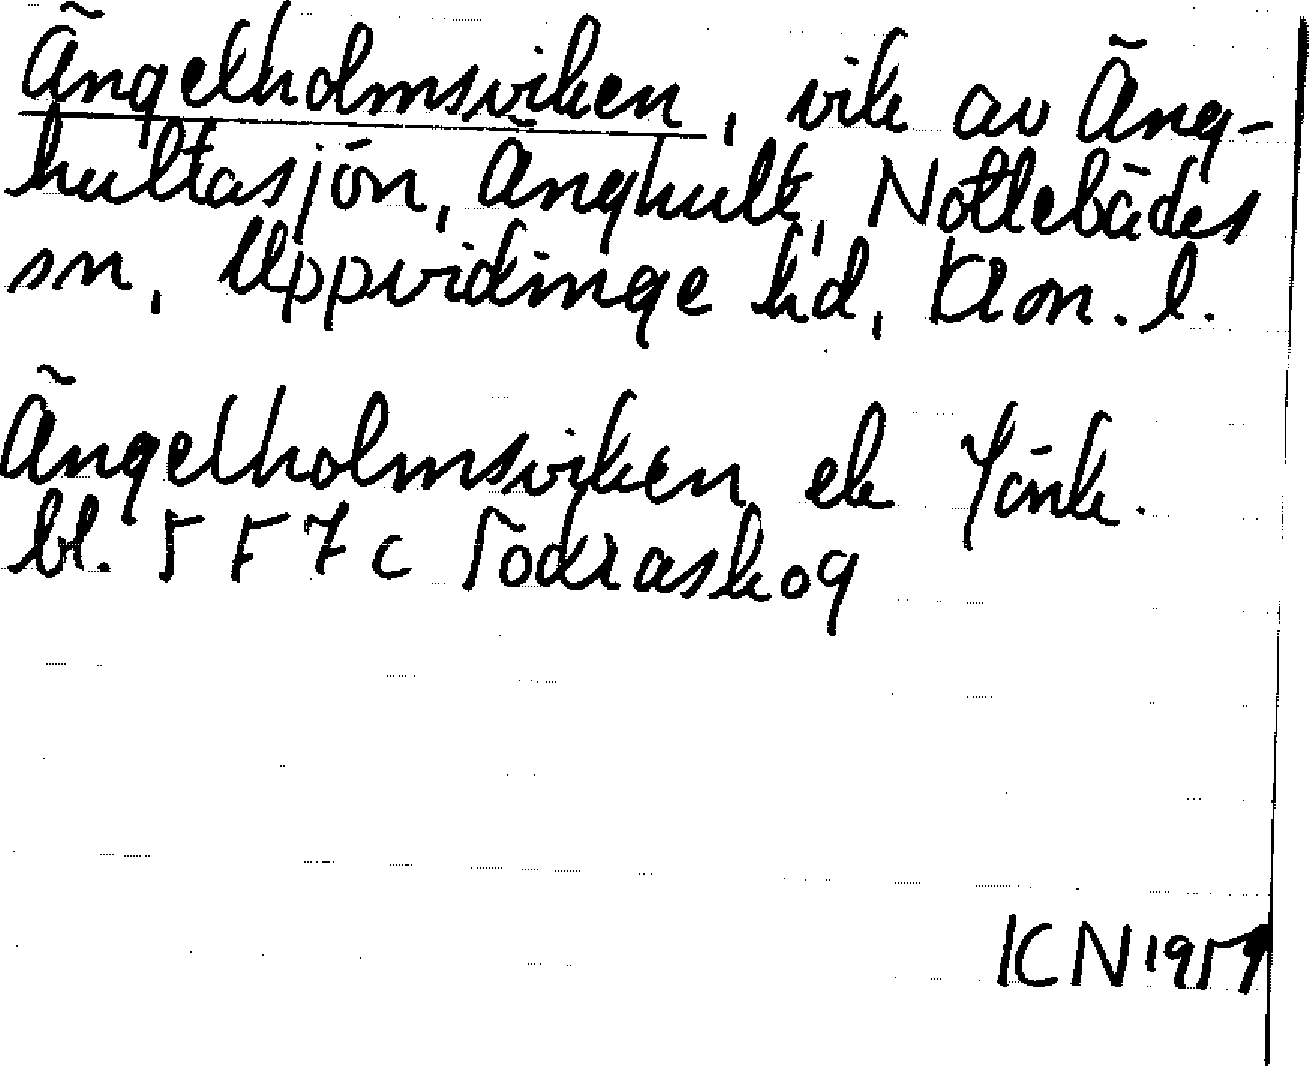 Ängelholmsviken, vik av Äng-
hultasjön, Änghult, Nottebäcks
sn, Uppvidinge hd, Kron. l.
Ängelholmsviken ek
bl. 5 F 7 c Södraskog
KN 1957